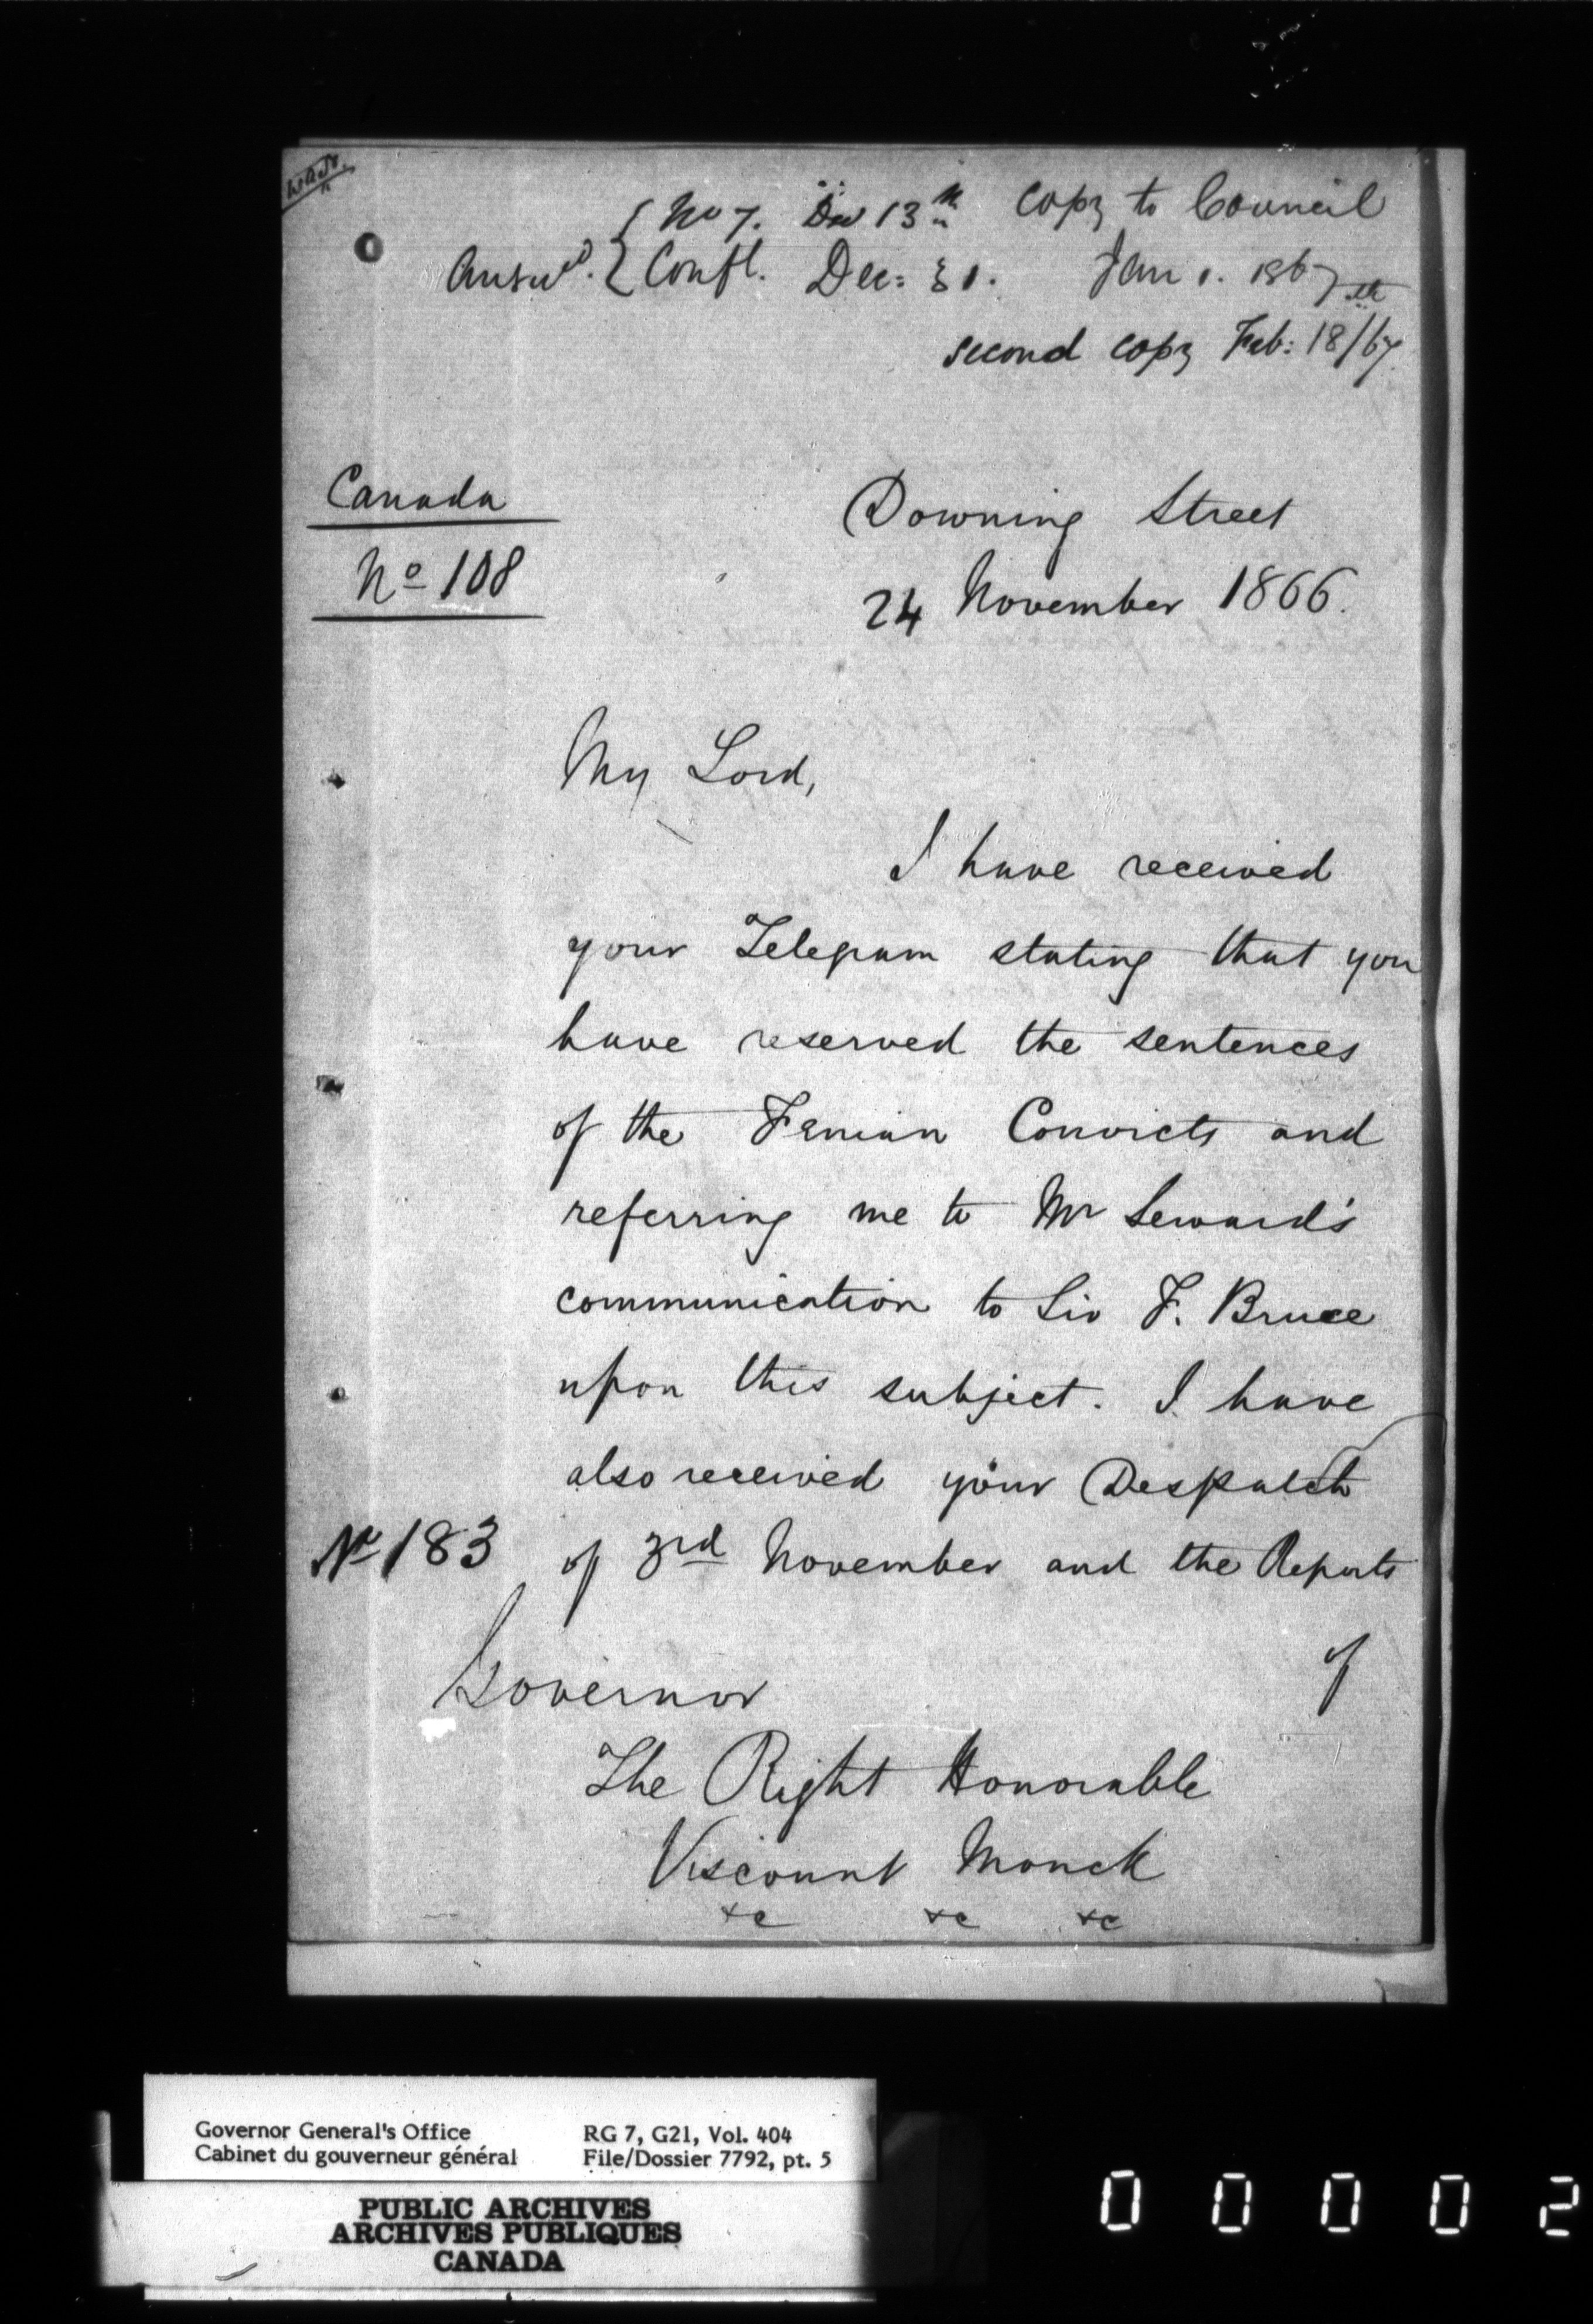 No 7. Dec 13th Copy to Council
Answd. { Confl. Dec: 31. Jan 1. 1867
second copy Feb: 18th/67.
Canada
No 108
Downing Street
24 November 1866.
My Lord,
I have received
your Telegram stating that you
have reserved the sentences
of the Fenian Convicts and
referring me to Mr Seward's
communication to Sir F. Bruce
upon this subject. I have
also received your Despatch
No 183
of 3rd November and the Reports
of
Governor
The Right Honorable
Viscount Monck
&c &c &c
Governor General's Office
Cabinet du gouverneur général
RG 7, G21, Vol. 404
File/Dossier 7792, pt. 5
PUBLIC ARCHIVES
ARCHIVES PUBLIQUES
CANADA
0 0 0 0 2